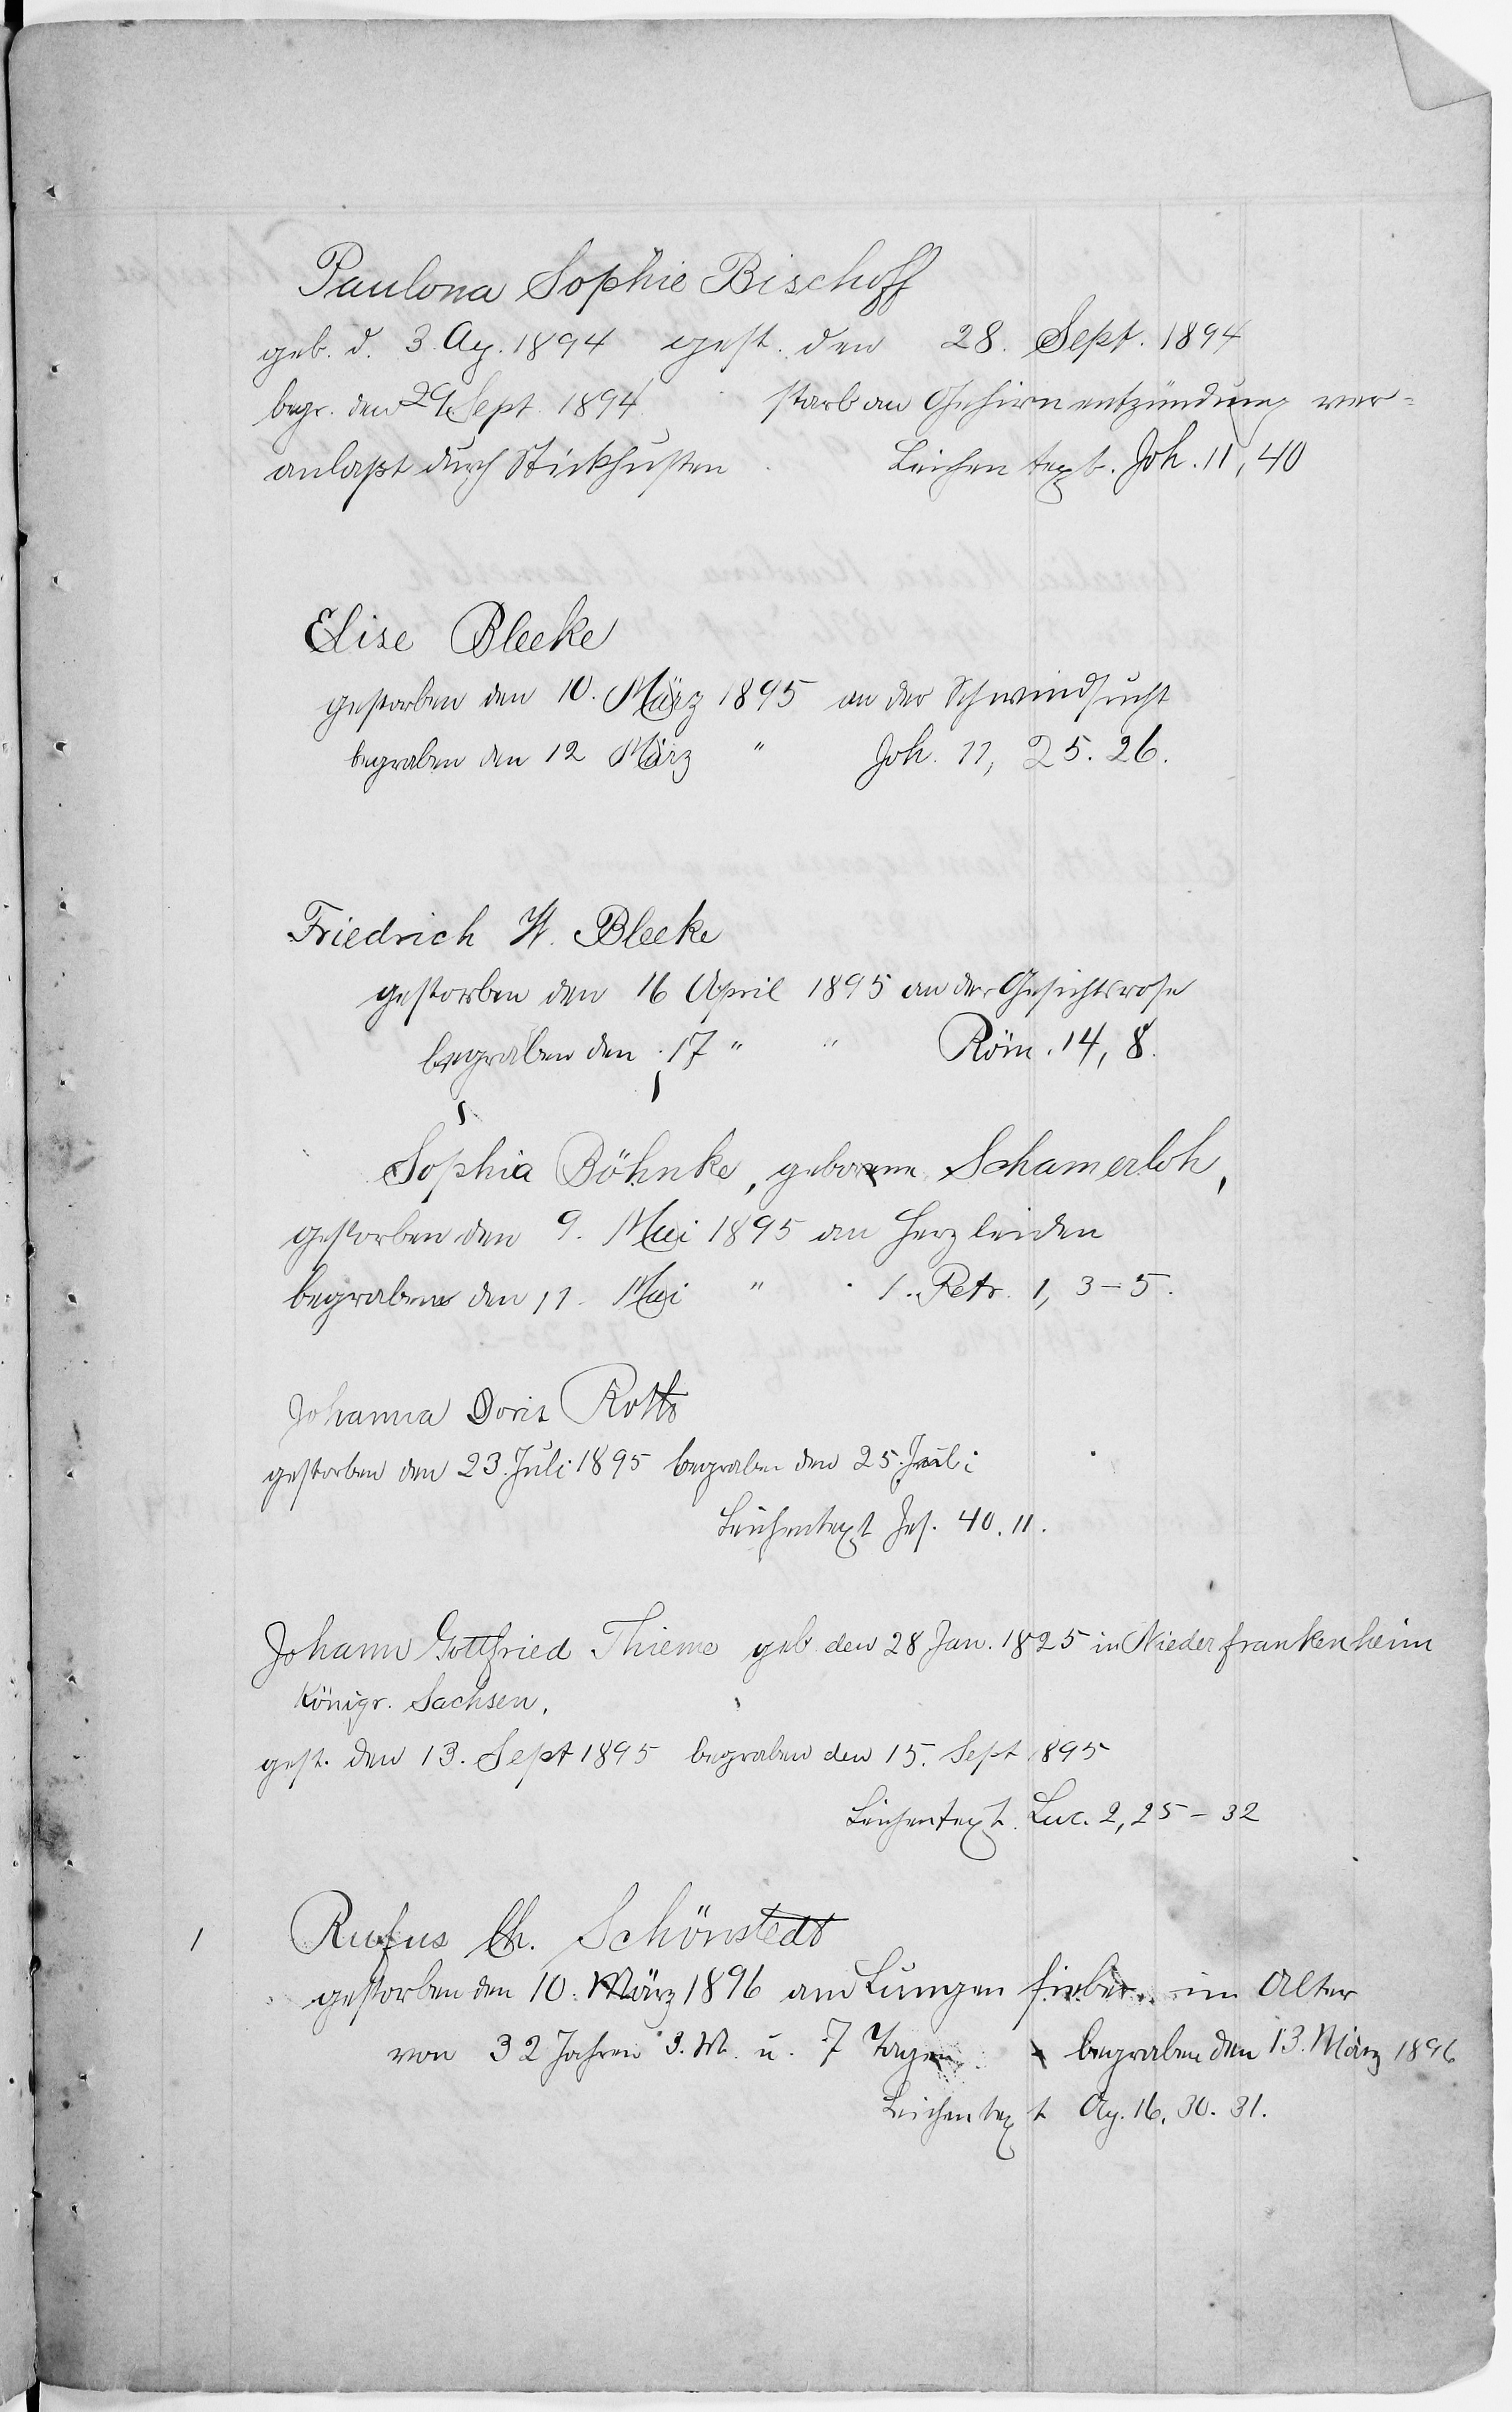 Paulona Sophie Bischoff
geb. d. 3. Ag. 1894 gest. den 28. Sept. 1894
begr. den 29 Sept. 1894 starb an Gehirnentzündung ver=
anlaßt durch Stickhusten Leichentext. Joh. 11, 40
Elise Bleeke
gestorben den 10. März 1895 an der Schwindsucht
begraben den 12 März " Joh. 11, 25. 26.
Friedrich W. Bleeke
gestorben den 16 April 1895 an der Gesichtsrose
begraben den 17 " " Röm. 14, 8.
Sophia Böhnke, geborene Schamerloh,
gestorben den 9. Mai 1895 an Herzleiden
begraben den 11. Mai " 1. Petr. 1, 3-5.
Johanna Doris Rotts
gestorben den 23. Juli 1895 begraben den 25. Juli
Leichentext Jes. 40. 11.
Johann Gottfried Thieme geb den 28 Jan. 1825 in Niederfrankenheim
Königr. Sachsen.
gest. den 13. Sept 1895 begraben den 15. Sept 1895
Leichentext. Luc. 2, 25-32
1 Rufus Ch. Schönstedt
gestorben den 10. März 1896 am Lungenfieber im Alter
von 32 Jahren 3. M. u. 7 Tagen begraben den 13. März 1896
Leichentext Ag. 16, 30. 31.